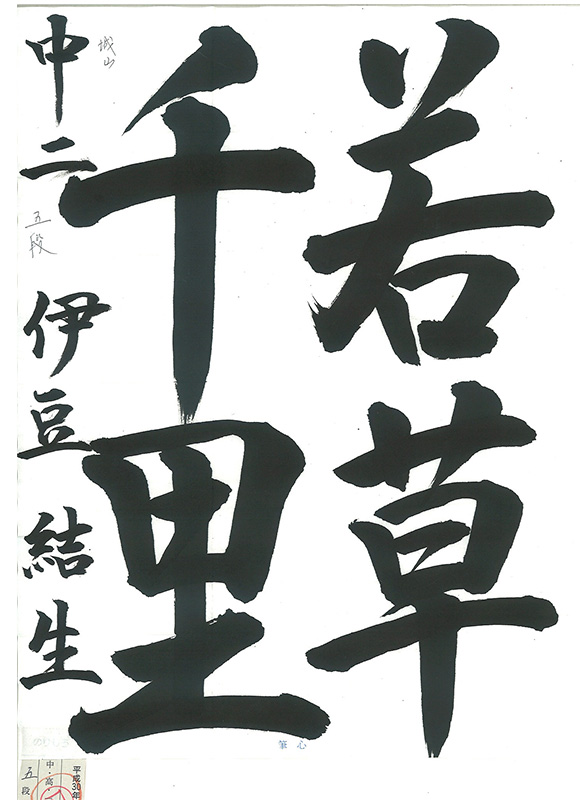 若草
千里
城山
中二 五段 伊豆 結生
心筆
のりしろ
平成30年
中・高
五段